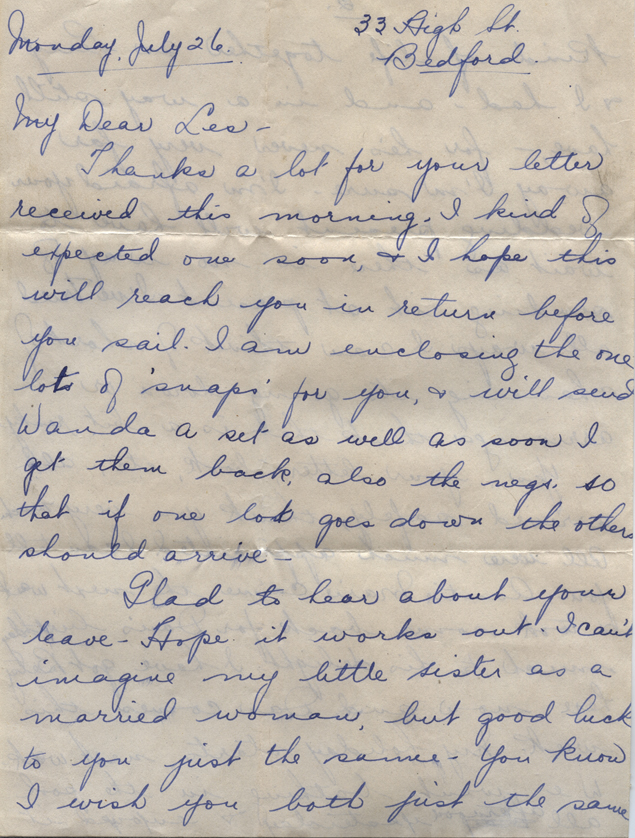 33 High St.
Monday, July 26.
Bedford.
My Dear Les -
Thanks a lot for your letter
received this morning. I kind of
expected one soon, & I hope this
will reach you in return before
you sail. I am enclosing the one
lots of 'snaps' for you, & will send
Wanda a set as well as soon I
get them back, also the negs. so
that if one lot goes down the others
should arrive -
Glad to hear about your
leave - Hope it works out. I can't
imagine my little sister as a
married woman, but good luck
to you just the same - You know
I wish you both just the same